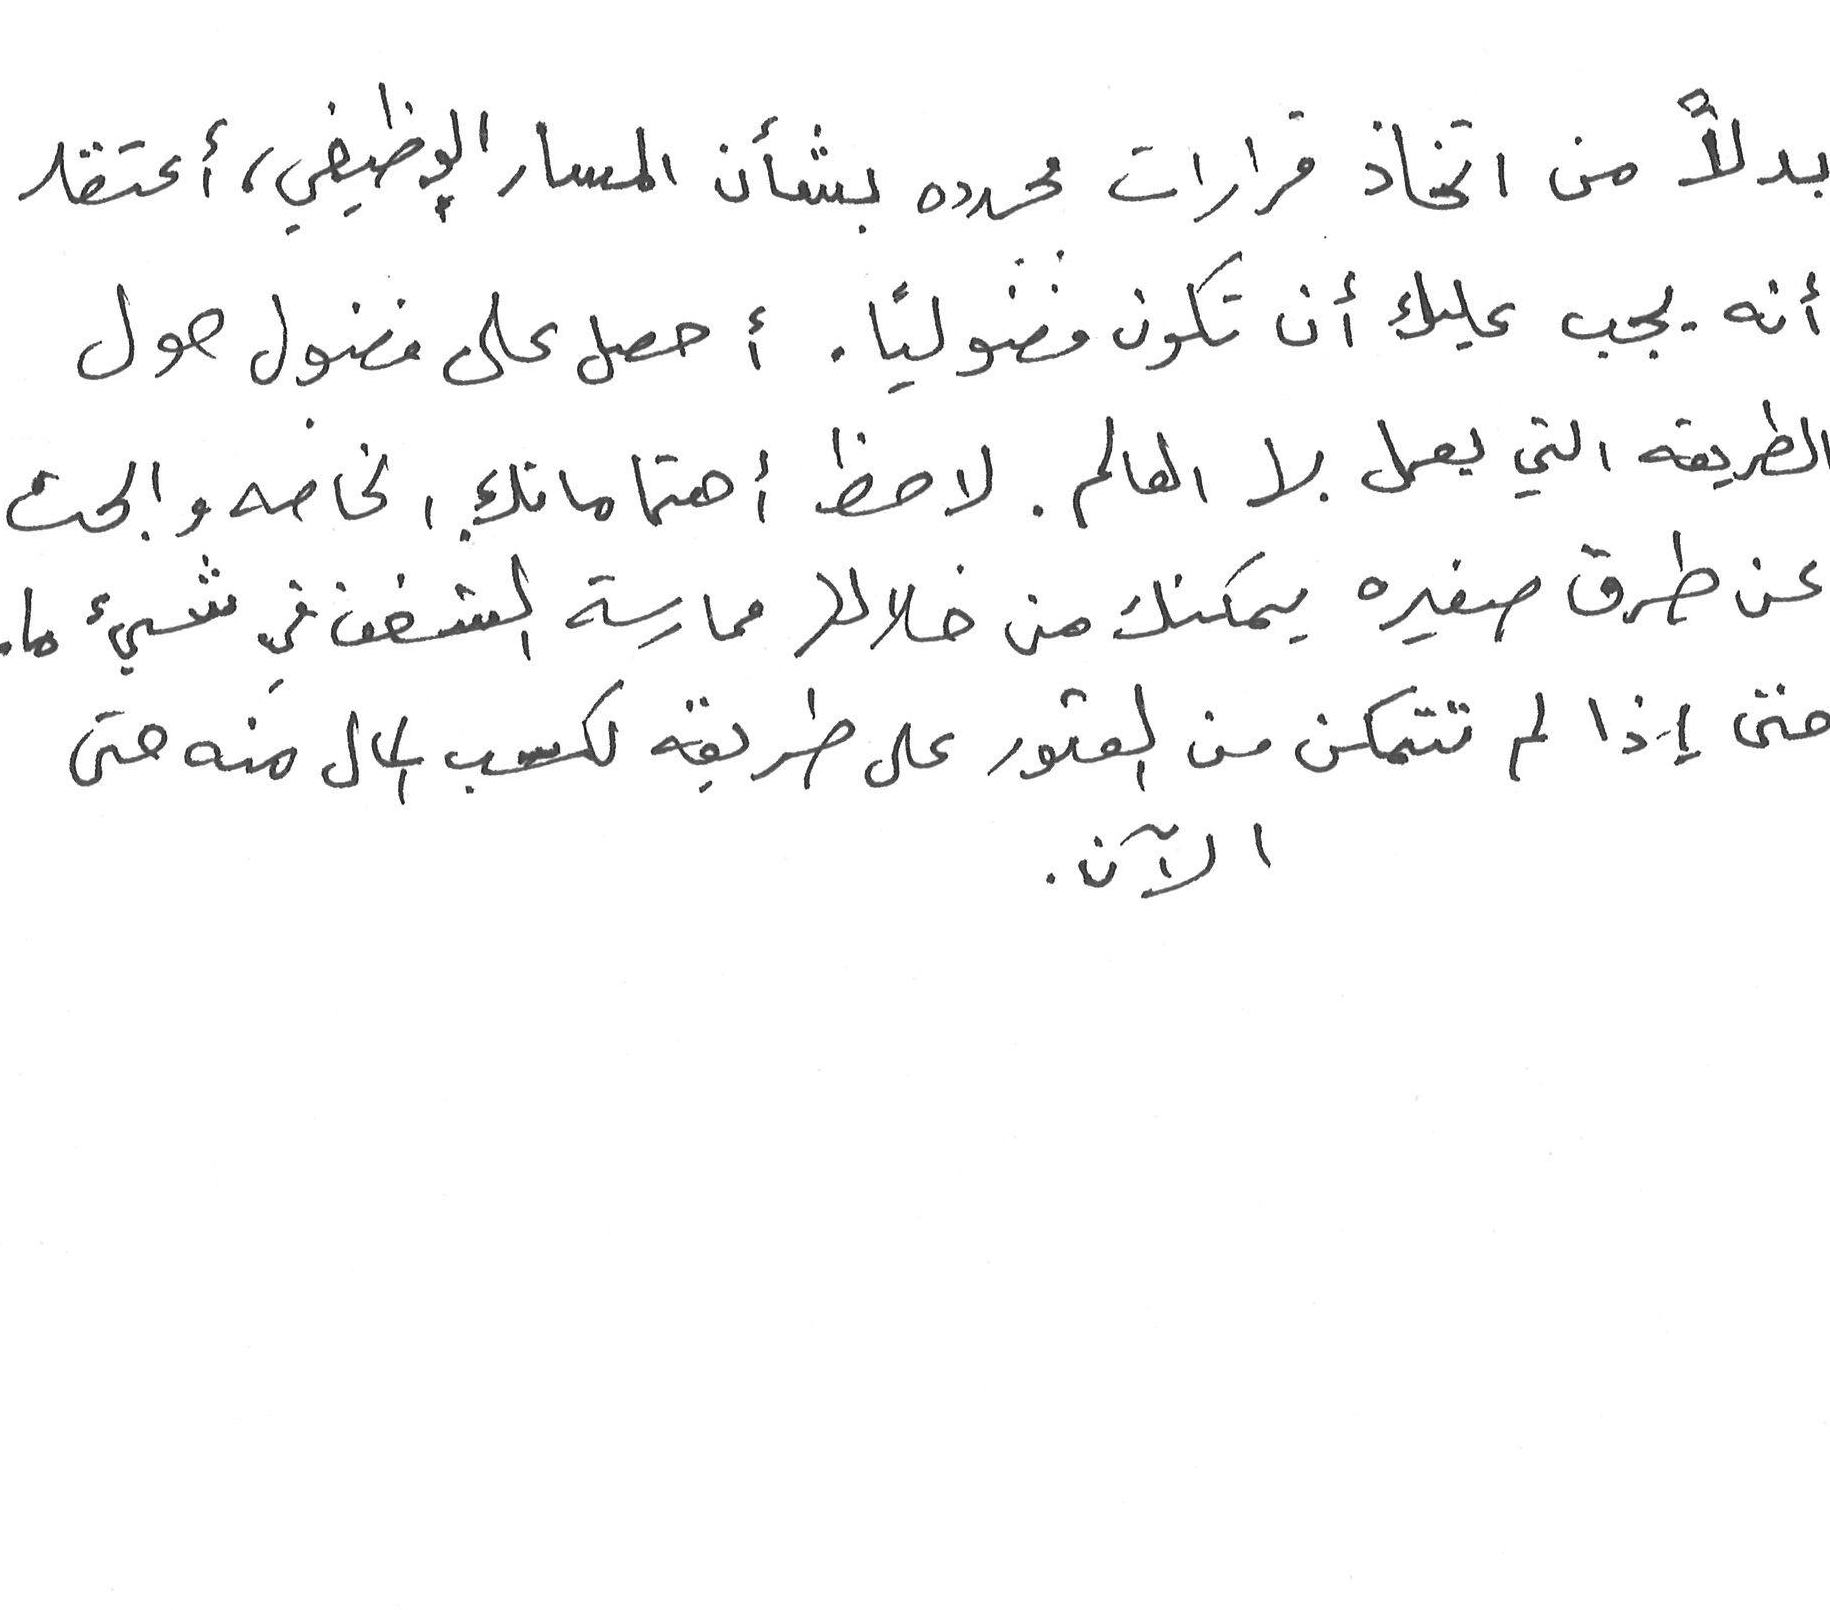 بدلاً من اتخاذ قرارات محدده بشأن المسار الوظيفي، أعتقد
أنه يجب عليك أن تكون فضوليًا. أحصل على فضول حول
الطريقه التي يعمل بها العالم. لاحظ أهتماماتك الخاصه وابحث
عن طرق صغيره يمكنك من خلالها ممارسة الشغف في شيئ ما.
حتى إذا لم تتمكن من العثور على طريقه لكسب المال منه حتى
الآن.